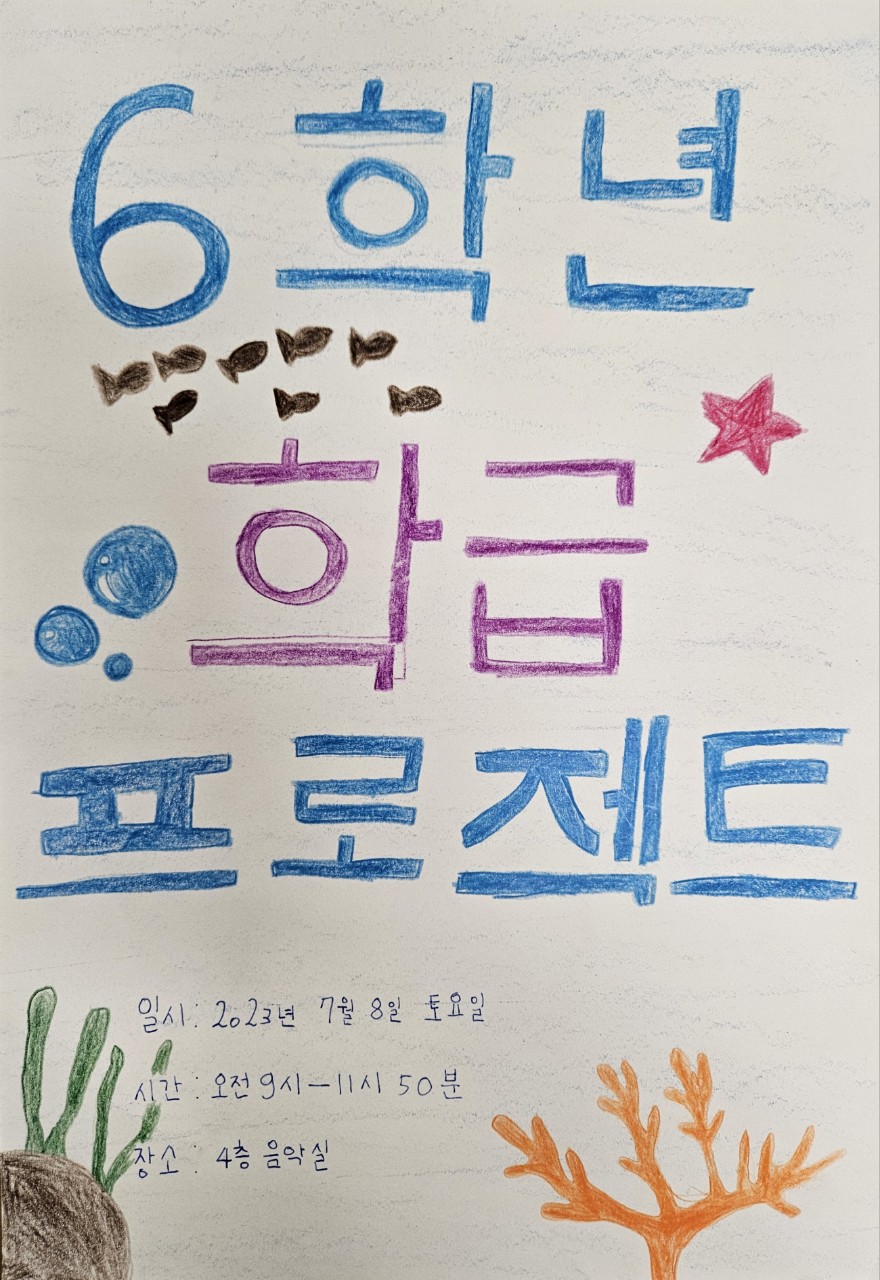 6학년
학급
프로젝트
일시: 2023년 7월 8일 토요일
시간: 오전 9시-11시 50분
장소: 4층 음악실